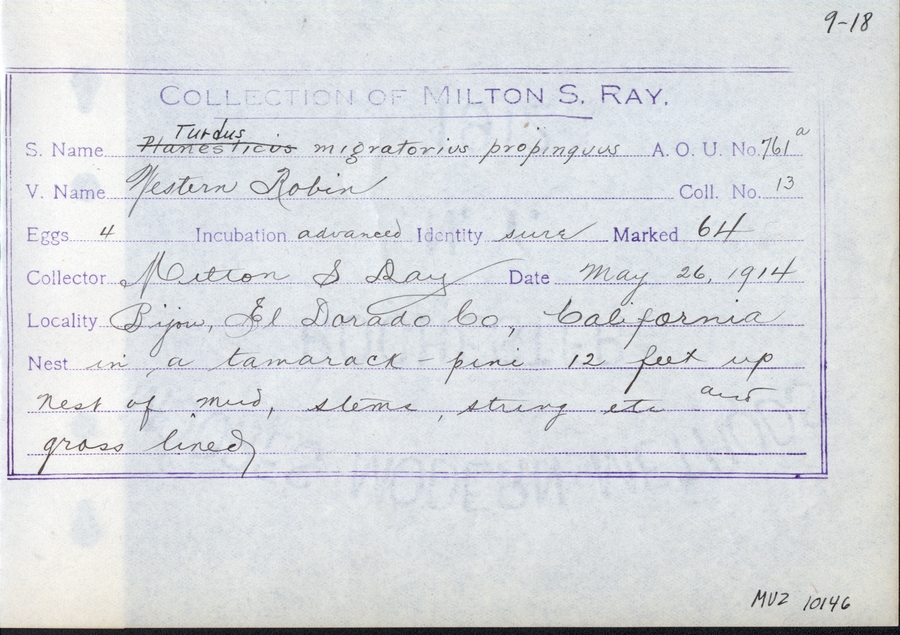 9-18
COLLECTION OF MILTON S. RAY.
Turdus
S. Name Planesticus migratorius propinquus A. O. U. No. 761a
V. Name Western Robin Coll. No. 13
Eggs 4 Incubation advanced Identity sure Marked 64
Collector Milton S Ray Date May 26, 1914
Locality Bijou, El Dorado Co, California
Nest in a tamarack-pine 12 feet up
nest of mud, stems, string etc and
grass lined
MVZ 10146